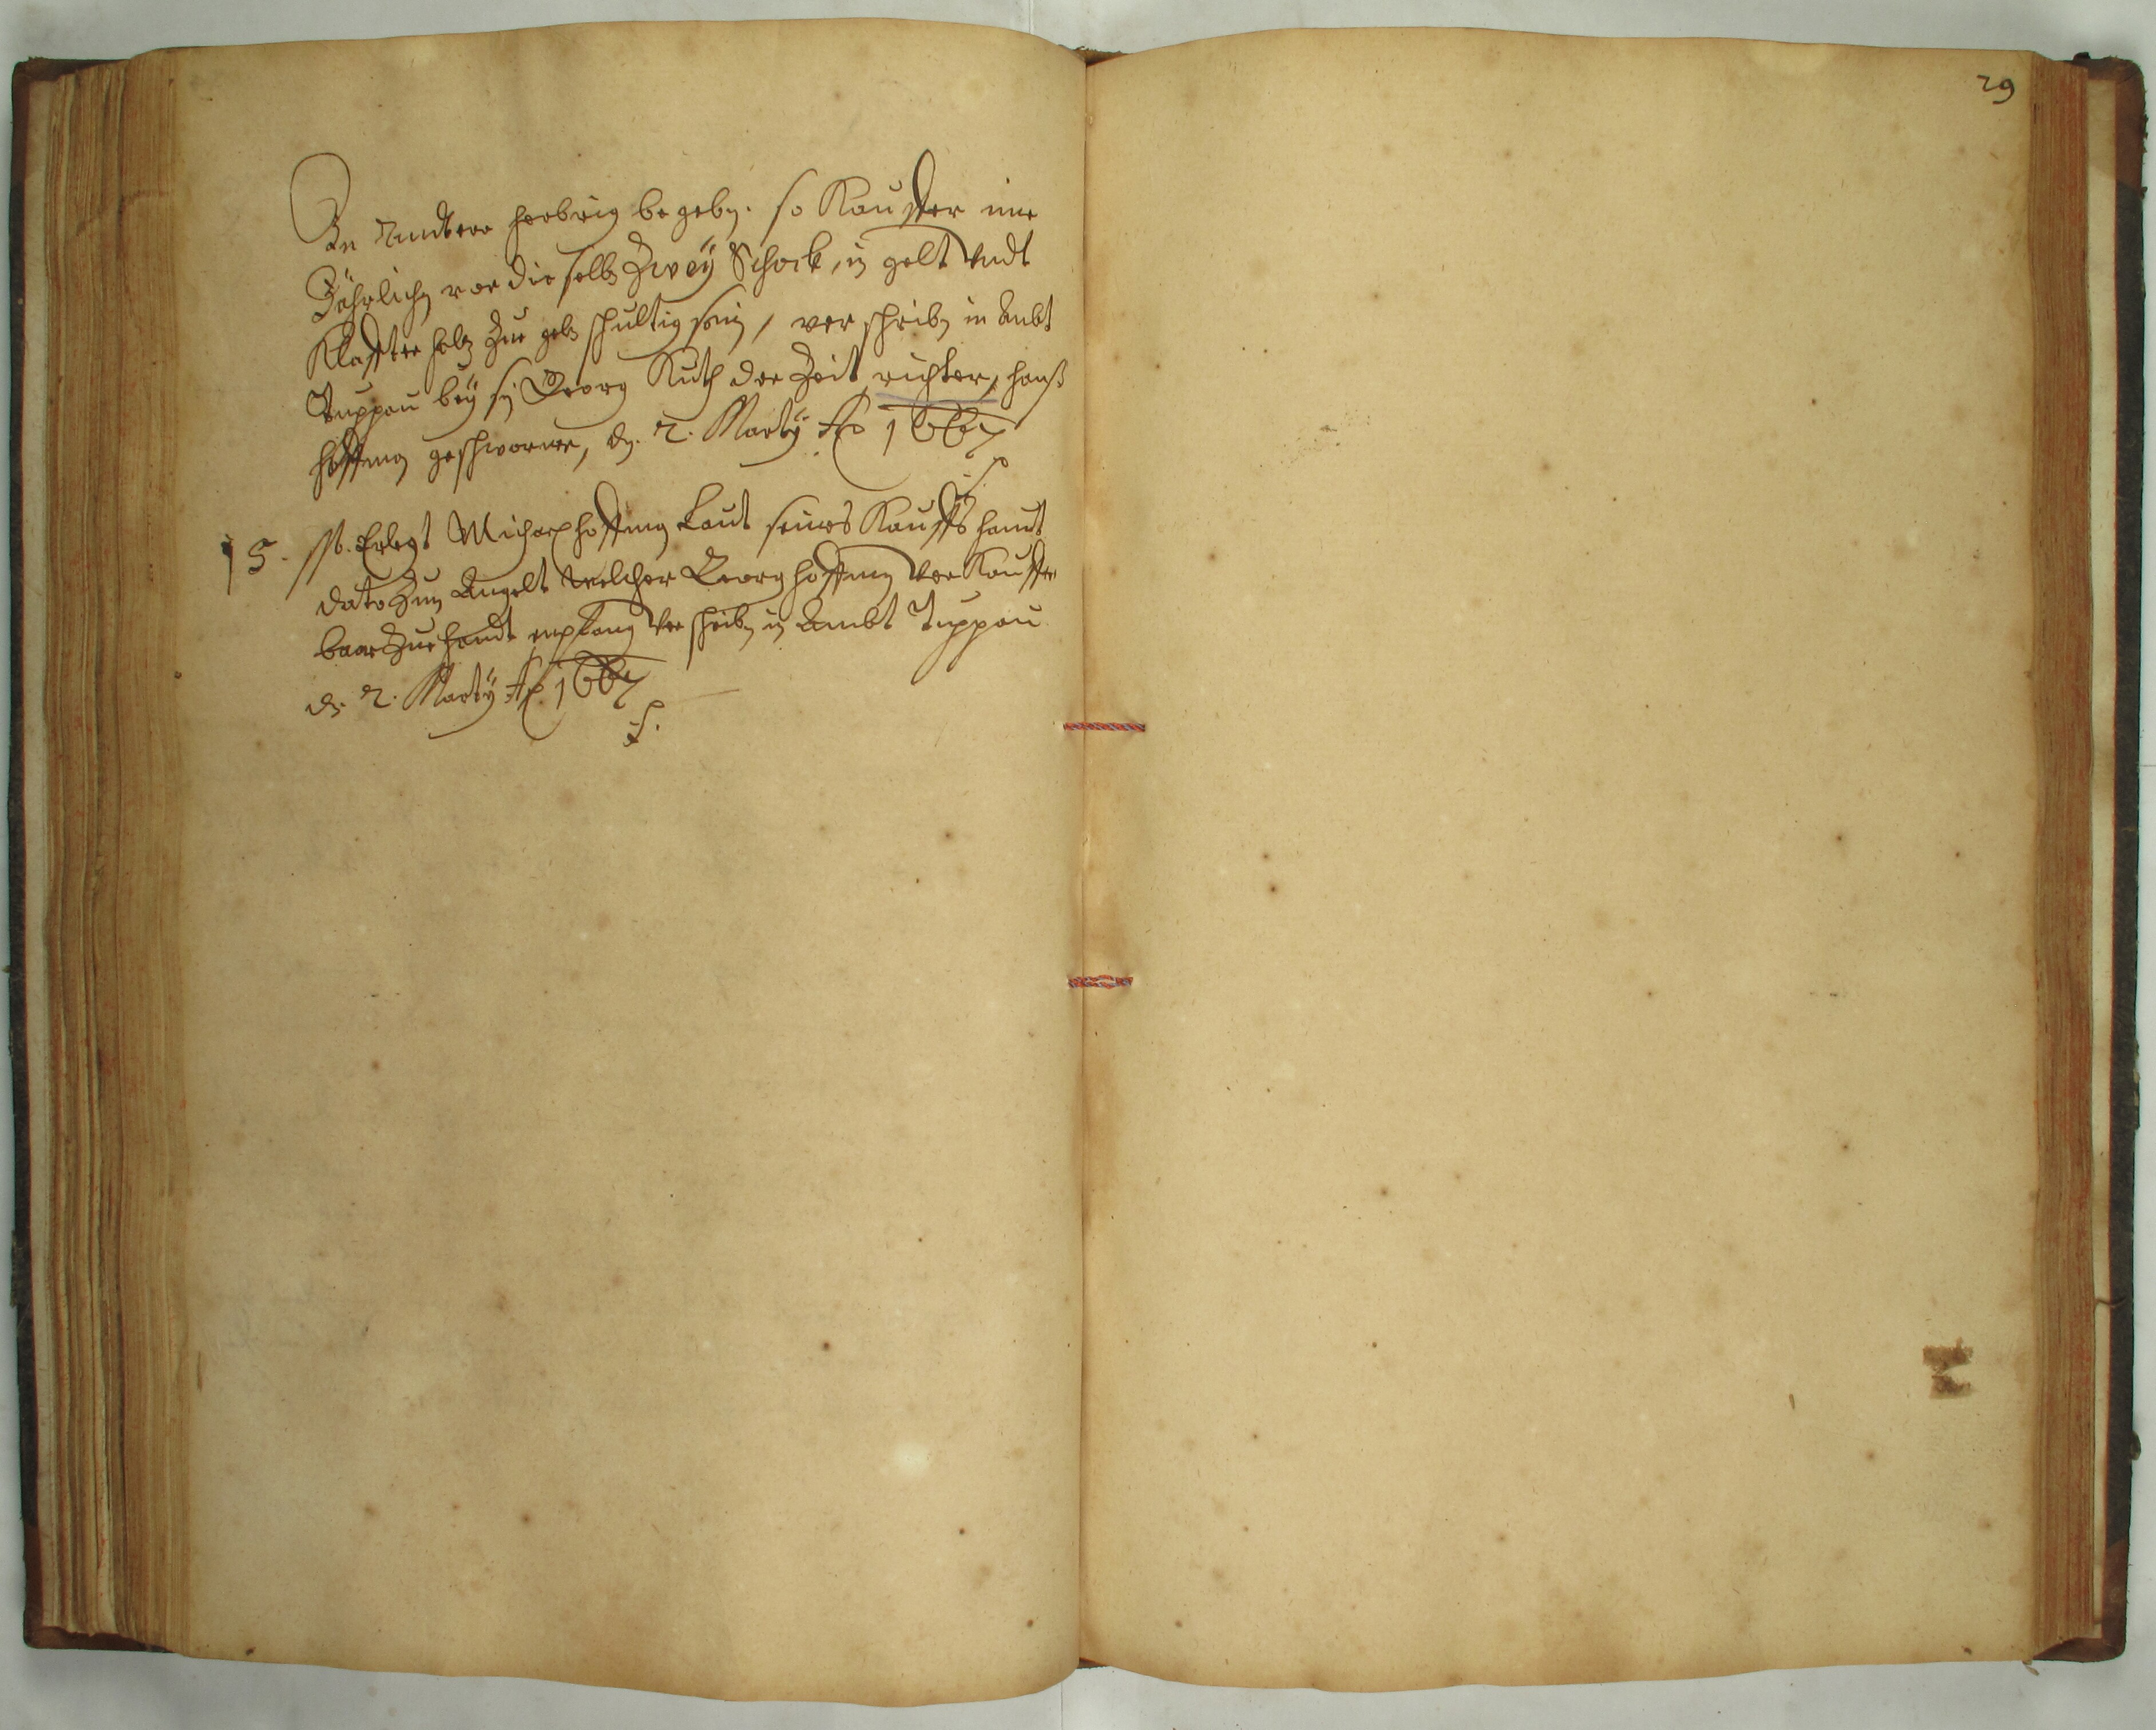 29
In Andtere herbrig begeb. so Kauffer ime
Jährlich vor dieselb Zweÿ Schock, in gelt Undt
Klaffter holz Zue geb schultig sein, verschrib in Ambt
Tuppau beÿ sein Georg Kuth der Zeit richter, hanß
hoffman geschworner, dn. 2. Martÿ Ao 1667
15. ßo. Erlegt Michael hoffman Laut seines Kauffs heut
dato Zum Angelt Welcher Georg hoffman Verkauffer
baar Zue handt empfang Verschrib in Ambt Tuppau
dn. 2. Martÿ Ao. 1667